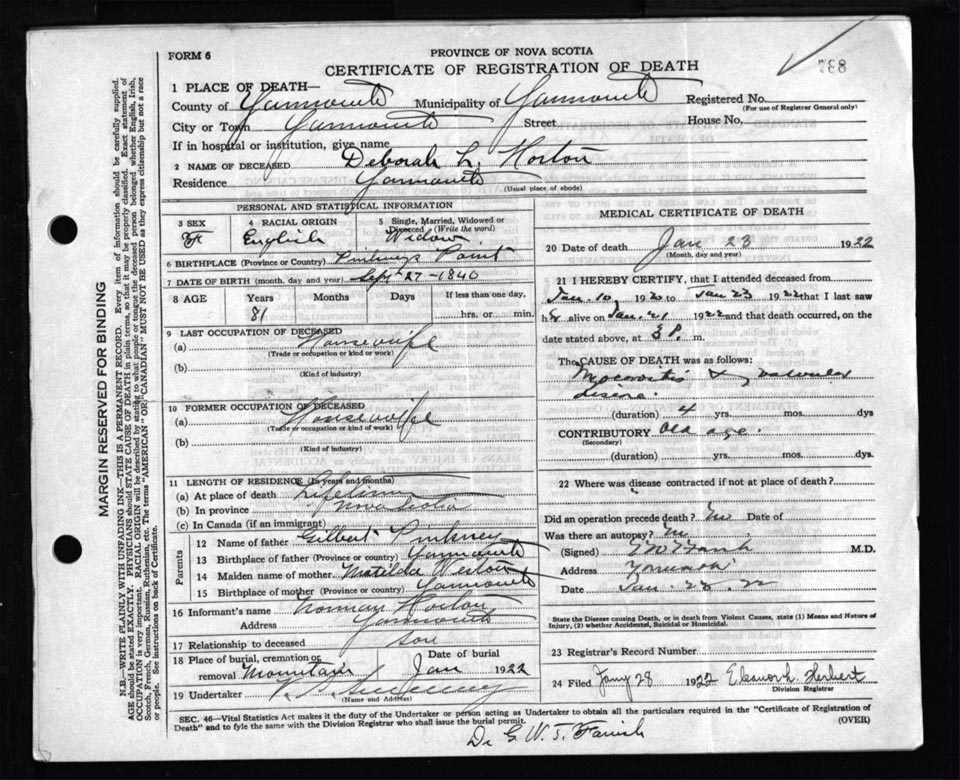 FORM 6
PROVINCE OF NOVA SCOTIA
CERTIFICATE OF REGISTRATION OF DEATH
788
MARGIN RESERVED FOR BINDING
N.B.—WRITE PLAINLY WITH UNFADING INK—THIS IS A PERMANENT RECORD. Every item of information should be carefully supplied.
AGE should be stated EXACTLY. PHYSICIANS should STATE CAUSE OF DEATH in plain terms, so that it may be properly classified. Exact statement of
OCCUPATION is very important. RACIAL ORIGIN will be described by stating to what people or tongue the deceased person belonged whether English, Irish,
Scotch, French, German, Russian, Ruthenian, etc. The terms "AMERICAN" OR "CANADIAN" MUST NOT BE USED as they express citizenship but not a race
or people. See instructions on back of Certificate.
1 PLACE OF DEATH—
County of Yarmouth Municipality of Yarmouth Registered No.
(For use of Registrar General only)
City or Town Yarmouth Street House No.
If in hospital or institution, give name
2 NAME OF DECEASED Deborah L. Horton
Residence Yarmouth
(Usual place of abode)
PERSONAL AND STATISTICAL INFORMATION
3 SEX F
4 RACIAL ORIGIN English
5 Single, Married, Widowed or Divorced (Write the word) Widow
6 BIRTHPLACE (Province or Country) Pinkneys Point
7 DATE OF BIRTH (month, day and year) Sept 27-1840
8 AGE Years Months Days If less than one day,
81 hrs. or min.
9 LAST OCCUPATION OF DECEASED
(a) Housewife
(Trade or occupation or kind or work)
(b)
(Kind of industry)
10 FORMER OCCUPATION OF DECEASED
(a) Housewife
(Trade or occupation or kind of work)
(b)
(Kind of industry)
11 LENGTH OF RESIDENCE (In years and months)
(a) At place of death Lifetime
(b) In province Nova Scotia
(c) In Canada (if an immigrant)
Parents
12 Name of father Gilbert Pinkney
13 Birthplace of father (Province or country) Yarmouth
14 Maiden name of mother Matilda Weston
15 Birthplace of mother (Province or country) Yarmouth
16 Informant's name Norman Horton
Address Yarmouth
17 Relationship to deceased son
18 Place of burial, cremation or removal Mountain
Date of burial Jan 1922
19 Undertaker
(Name and Address)
MEDICAL CERTIFICATE OF DEATH
20 Date of death Jan 23 1922
(Month, day and year)
21 I HEREBY CERTIFY, that I attended deceased from
Jan. 10, 1920 to Jan 23 1922 that I last saw
her alive on Jan. 21 1922 and that death occurred, on the
date stated above, at 3 P. m.
The CAUSE OF DEATH was as follows:
& valvular
(duration) 4 yrs. mos. dys
CONTRIBUTORY Old age.
(Secondary)
(duration) yrs. mos. dys.
22 Where was disease contracted if not at place of death?
Did an operation precede death? No Date of
Was there an autopsy? No
(Signed) M.D.
Address Yarmouth
Date Jan 28. 22
State the Disease causing Death, or in death from Violent Causes, state (1) Means and Nature of
Injury, (2) whether Accidental, Suicidal or Homicidal.
23 Registrar's Record Number
24 Filed Jany 28 1922 Eleanor h. Herbert
Division Registrar
SEC. 46—Vital Statistics Act makes it the duty of the Undertaker or person acting as Undertaker to obtain all the particulars required in the "Certificate of Registration of
Death" and to fyle the same with the Division Registrar who shall issue the burial permit. (OVER)
Dr G. W. T. Farish